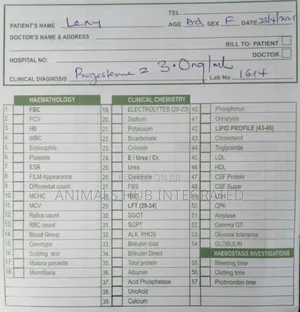 TEL:
PATIENT'S NAME Leny AGE Ad SEX F
DOCTOR'S NAME & ADDRESS
BILL TO: PATIENT
DOCTOR
HOSPITAL NO:
CLINICAL DIAGNOSIS Progesterone 2 3.0ng/ml Lab No 1614
HAEMATHOLOGY CLINICAL CHEMISTRY
1. FBC 19. ELECTROLYTES (20-23) 40. Phosphorus
2. PCV 20. Sodium 41. Urinalysis
3. HB 21. Potassium 42. LIPID PROFILE (43-46)
4. WBC 22. Bicarbonate 43. Cholesterol
5. Eosinophils 23. Chloride 44. Triglyceride
6. Platelets 24. E / Urea / Cr. 45. LDL
7. ESR 25. Urea 46. HDL
8. FILM Appearance 26. Creatinine 47. CSF Protein
9. Differential count 27. FBS 48. CSF Sugar
10. MCHC
11. MCV 29. LFT (30-34) 50. CPK
12. Retics count 30. SGOT 51. Amylase
13. RBC count 31. SGPT 52. Gamma GT
14. Blood Group 32. ALK. PHOS 53. Glucose tolerance
15. Genotype 33. Bilirubin total 54. GLOBULIN
16. Sickling test 34. Bilirubin Direct HAEMOSTASIS INVESTIGATIONS
17. Malaria parasite 35. Total protein 55. Bleeding time
18. Microfilaria 36. Albumin 56. Clotting time
37. Acid Phosphatase 57. Prothrombin time
38. UricAcid
39. Calcium
ANIMALS HUB INTEGRATED